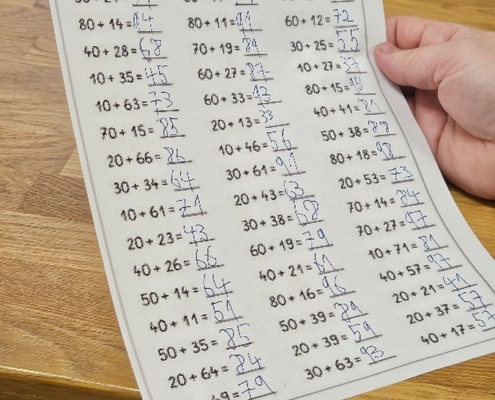 80 + 14 = 94
40 + 28 = 68
10 + 35 = 45
10 + 63 = 73
70 + 15 = 85
20 + 66 = 86
30 + 34 = 64
10 + 61 = 71
20 + 23 = 43
40 + 26 = 66
50 + 14 = 64
40 + 11 = 51
50 + 35 = 85
20 + 64 = 84
49 = 79
80 + 11 = 91
70 + 19 = 89
60 + 27 = 87
60 + 33 = 93
20 + 13 = 33
10 + 46 = 56
30 + 61 = 91
20 + 43 = 63
30 + 38 = 68
60 + 19 = 79
40 + 21 = 61
80 + 16 = 96
50 + 39 = 89
20 + 39 = 59
30 + 63 = 93
60 + 12 = 72
30 + 25 = 55
10 + 27 = 37
80 + 15 =
40 + 41 = 81
50 + 38 = 88
80 + 18 = 98
20 + 53 = 73
70 + 14 = 84
70 + 27 = 97
10 + 71 = 81
40 + 57 = 97
20 + 21 = 41
20 + 37 = 57
40 + 17 = 57